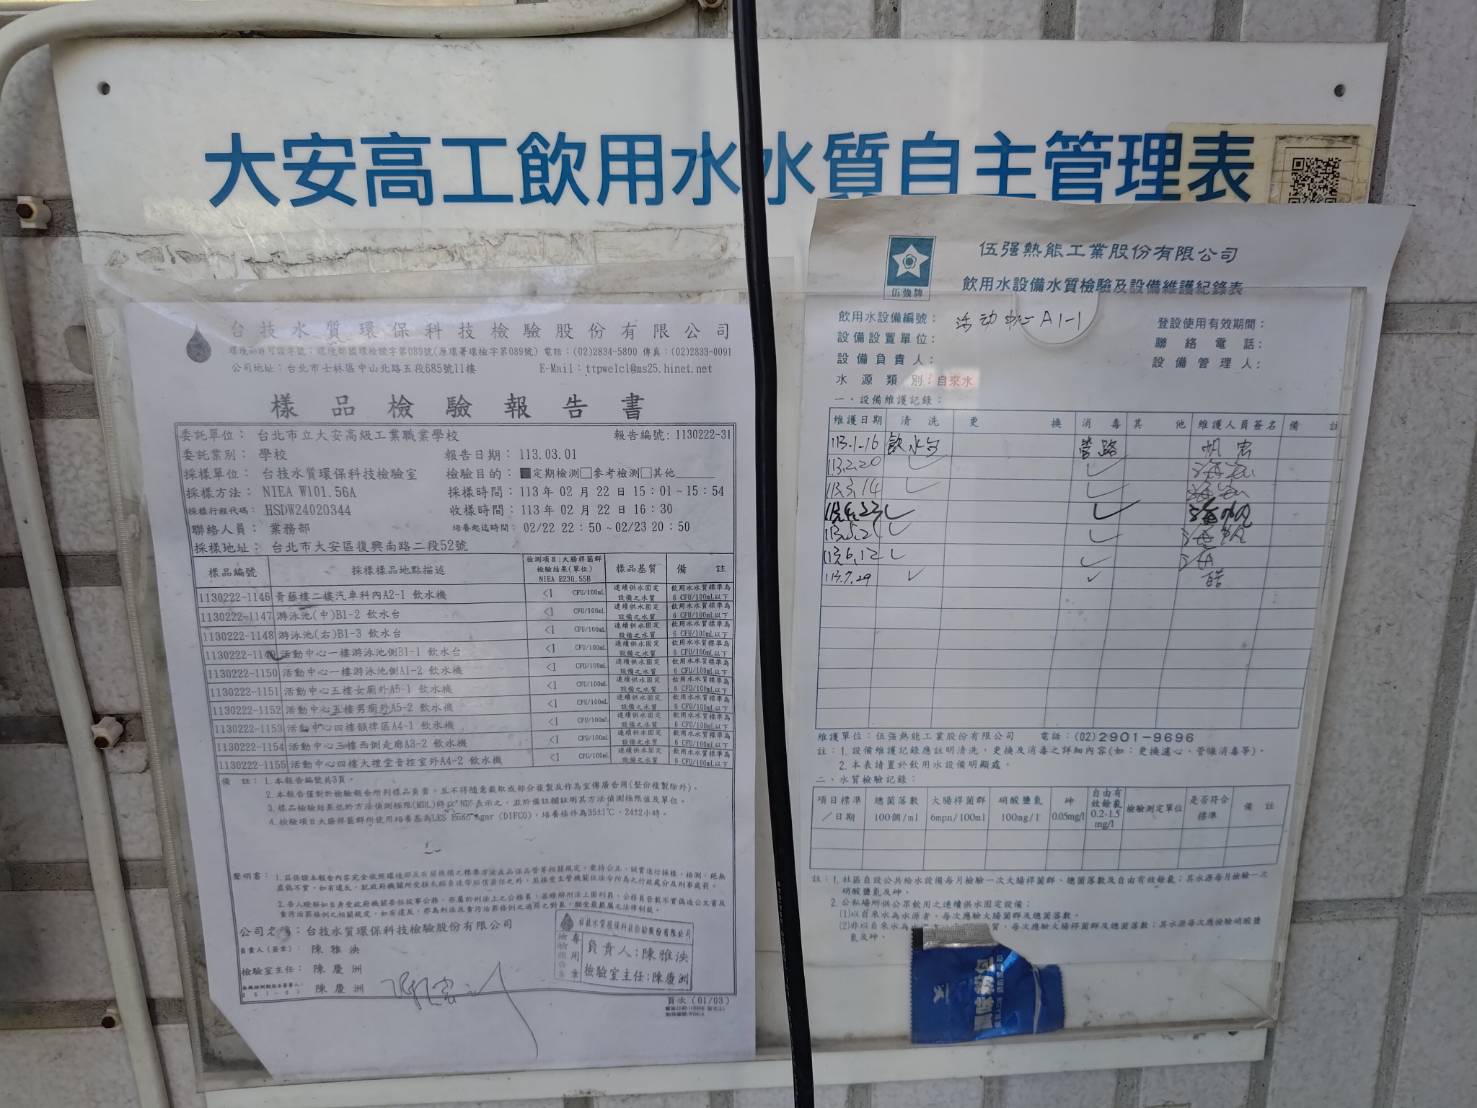 大安高工飲用水水質自主管理表
台技水質環保科技檢驗股份有限公司
電話：(02)2834-5800 傳真：(02)2833-0091
公司地址：台北市士林區中山北路五段685號11樓 E-Mail：ttpwelcl@ms25.hinet.net
樣品檢驗報告書
委託單位：台北市立大安高級工業職業學校 報告編號：1130222-31
委託業別：學校 報告日期：113.03.01
採樣單位：台技水質環保科技檢驗室 檢驗目的：■定期檢測□參考檢測□其他
採樣方法：NIEA W101.56A 採樣時間：113 年 02 月 22 日 15：01~15：54
採樣行程代碼：HSDW24020344 收樣時間：113 年 02 月 22 日 16：30
聯絡人員：業務部 培養起迄時間：02/22 22：50~02/23 20：50
採樣地址：台北市大安區復興南路二段52號
樣品編號 採樣樣品地點描述 檢測項目：大腸桿菌群 檢驗結果(單位) NIEA E230.55B 樣品基質 備註
1130222-1146 青藤樓二樓汽車科內A2-1 飲水機 <1 CFU/100mL 連續供水固定設備之水質 飲用水水質標準為6 CFU/100mL以下
1130222-1147 游泳池(中)B1-2 飲水台 <1 CFU/100mL 連續供水固定設備之水質 飲用水水質標準為6 CFU/100mL以下
1130222-1148 游泳池(右)B1-3 飲水台 <1 CFU/100mL 連續供水固定設備之水質 飲用水水質標準為6 CFU/100mL以下
1130222-1149 活動中心一樓游泳池側B1-1 飲水台 <1 CFU/100mL 連續供水固定設備之水質 飲用水水質標準為6 CFU/100mL以下
1130222-1150 活動中心一樓游泳池側A1-2 飲水機 <1 CFU/100mL 連續供水固定設備之水質 飲用水水質標準為6 CFU/100mL以下
1130222-1151 活動中心五樓女廁外A5-1 飲水機 <1 CFU/100mL 連續供水固定設備之水質 飲用水水質標準為6 CFU/100mL以下
1130222-1152 活動中心五樓男廁外A5-2 飲水機 <1 CFU/100mL 連續供水固定設備之水質 飲用水水質標準為6 CFU/100mL以下
1130222-1153 活動中心四樓頒獎區A4-1 飲水機 <1 CFU/100mL 連續供水固定設備之水質 飲用水水質標準為6 CFU/100mL以下
1130222-1154 活動中心三樓西側走廊A3-2 飲水機 <1 CFU/100mL 連續供水固定設備之水質 飲用水水質標準為6 CFU/100mL以下
1130222-1155 活動中心四樓大禮堂音控室外A4-2 飲水機 <1 CFU/100mL 連續供水固定設備之水質 飲用水水質標準為6 CFU/100mL以下
備註：1.本報告編號共3頁。
2.本報告僅對於檢驗報告所列樣品負責，並不得隨意截取或部份複製及作為宣傳廣告用(整份複製除外)。
3.樣品檢驗結果低於方法偵測極限(MDL)時以"ND"表示之，並於備註欄註明其方法偵測極限值及單位。
聲明書：
公司名稱：台技水質環保科技檢驗股份有限公司
負責人(簽章)：陳雅泱
檢驗室主任：陳慶洲
陳慶洲
台技水質環保科技檢驗股份有限公司
負責人：陳雅泱
檢驗室主任：陳慶洲
頁次(01/03)
伍强牌
伍强熱能工業股份有限公司
飲用水設備水質檢驗及設備維護紀錄表
飲用水設備編號：活动中心A1-1 登設使用有效期間：
設備設置單位： 聯絡電話：
設備負責人： 設備管理人：
水源類別：自來水
一、設備維護記錄：
維護日期 清洗 更換 消毒 其他 維護人員簽名 備註
113.1-16 飲水台 管路
113.2.20
113.3.14
113.4.23
113.5.2
113.6.12
113.7.29
維護單位：伍强熱能工業股份有限公司 電話：(02)2901-9696
註：1.設備維護記錄應註明清洗、更換及消毒之詳細內容(如：更換濾心、管線消毒等)。
2.本表請置於飲用水設備明顯處。
二、水質檢驗記錄：
項目標準／日期 總菌落數 100個/ml 大腸桿菌群 6mpn/100ml 硝酸鹽氮 100mg/l 砷 0.05mg/l 自由有效餘氯 0.2-1.5 mg/l 檢驗測定單位 是否符合標準 備註
註：1.社區自設公共給水設備每月檢驗一次大腸桿菌群、總菌落數及自由有效餘氯；其水源每月檢驗一次硝酸鹽氮及砷。
2.公私場所供公眾飲用之連續供水固定設備：
(1)以自來水為水源者，每次應驗大腸桿菌群及總菌落數。
(2)非以自來水為 質，每次應驗大腸桿菌群及總菌落數；其水源每次應檢驗硝酸鹽氮及砷。